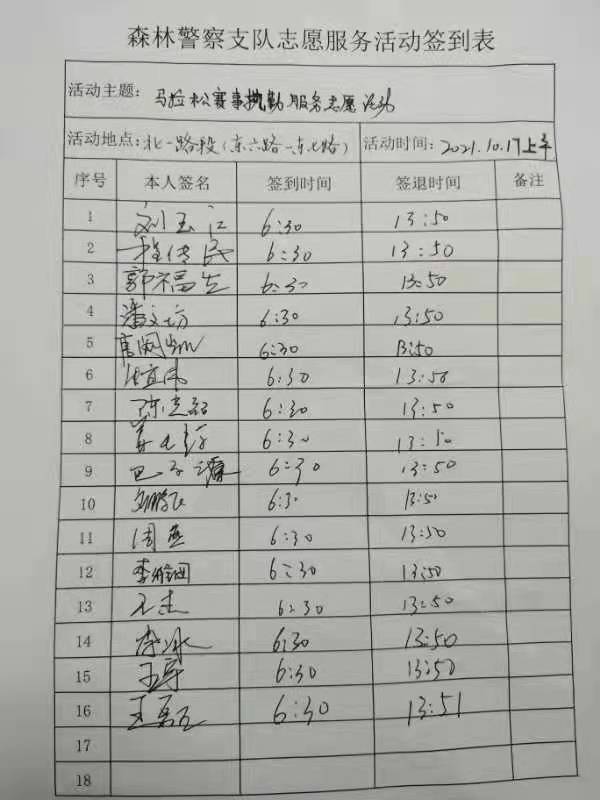 森林警察支队志愿服务活动签到表
活动主题: 马拉松赛事执勤服务志愿活动
活动地点: 北一路段(东六路-东七路) 活动时间: 2021.10.17上午
序号 本人签名 签到时间 签退时间 备注
1 刘玉江 6:30 13:50
2 程传民 6:30 13:50
3 郭福生 6:30 13:50
4 潘文坊 6:30 13:50
5 6:30 13:50
6 6:30 13:50
7 6:30 13:50
8 6:30 13:50
9 6:30 13:50
10 6:30 13:50
11 周燕 6:30 13:50
12 6:30 13:50
13 6:30 13:50
14 李冰 6:30 13:50
15 6:30 13:50
16 王磊 6:30 13:51
17
18